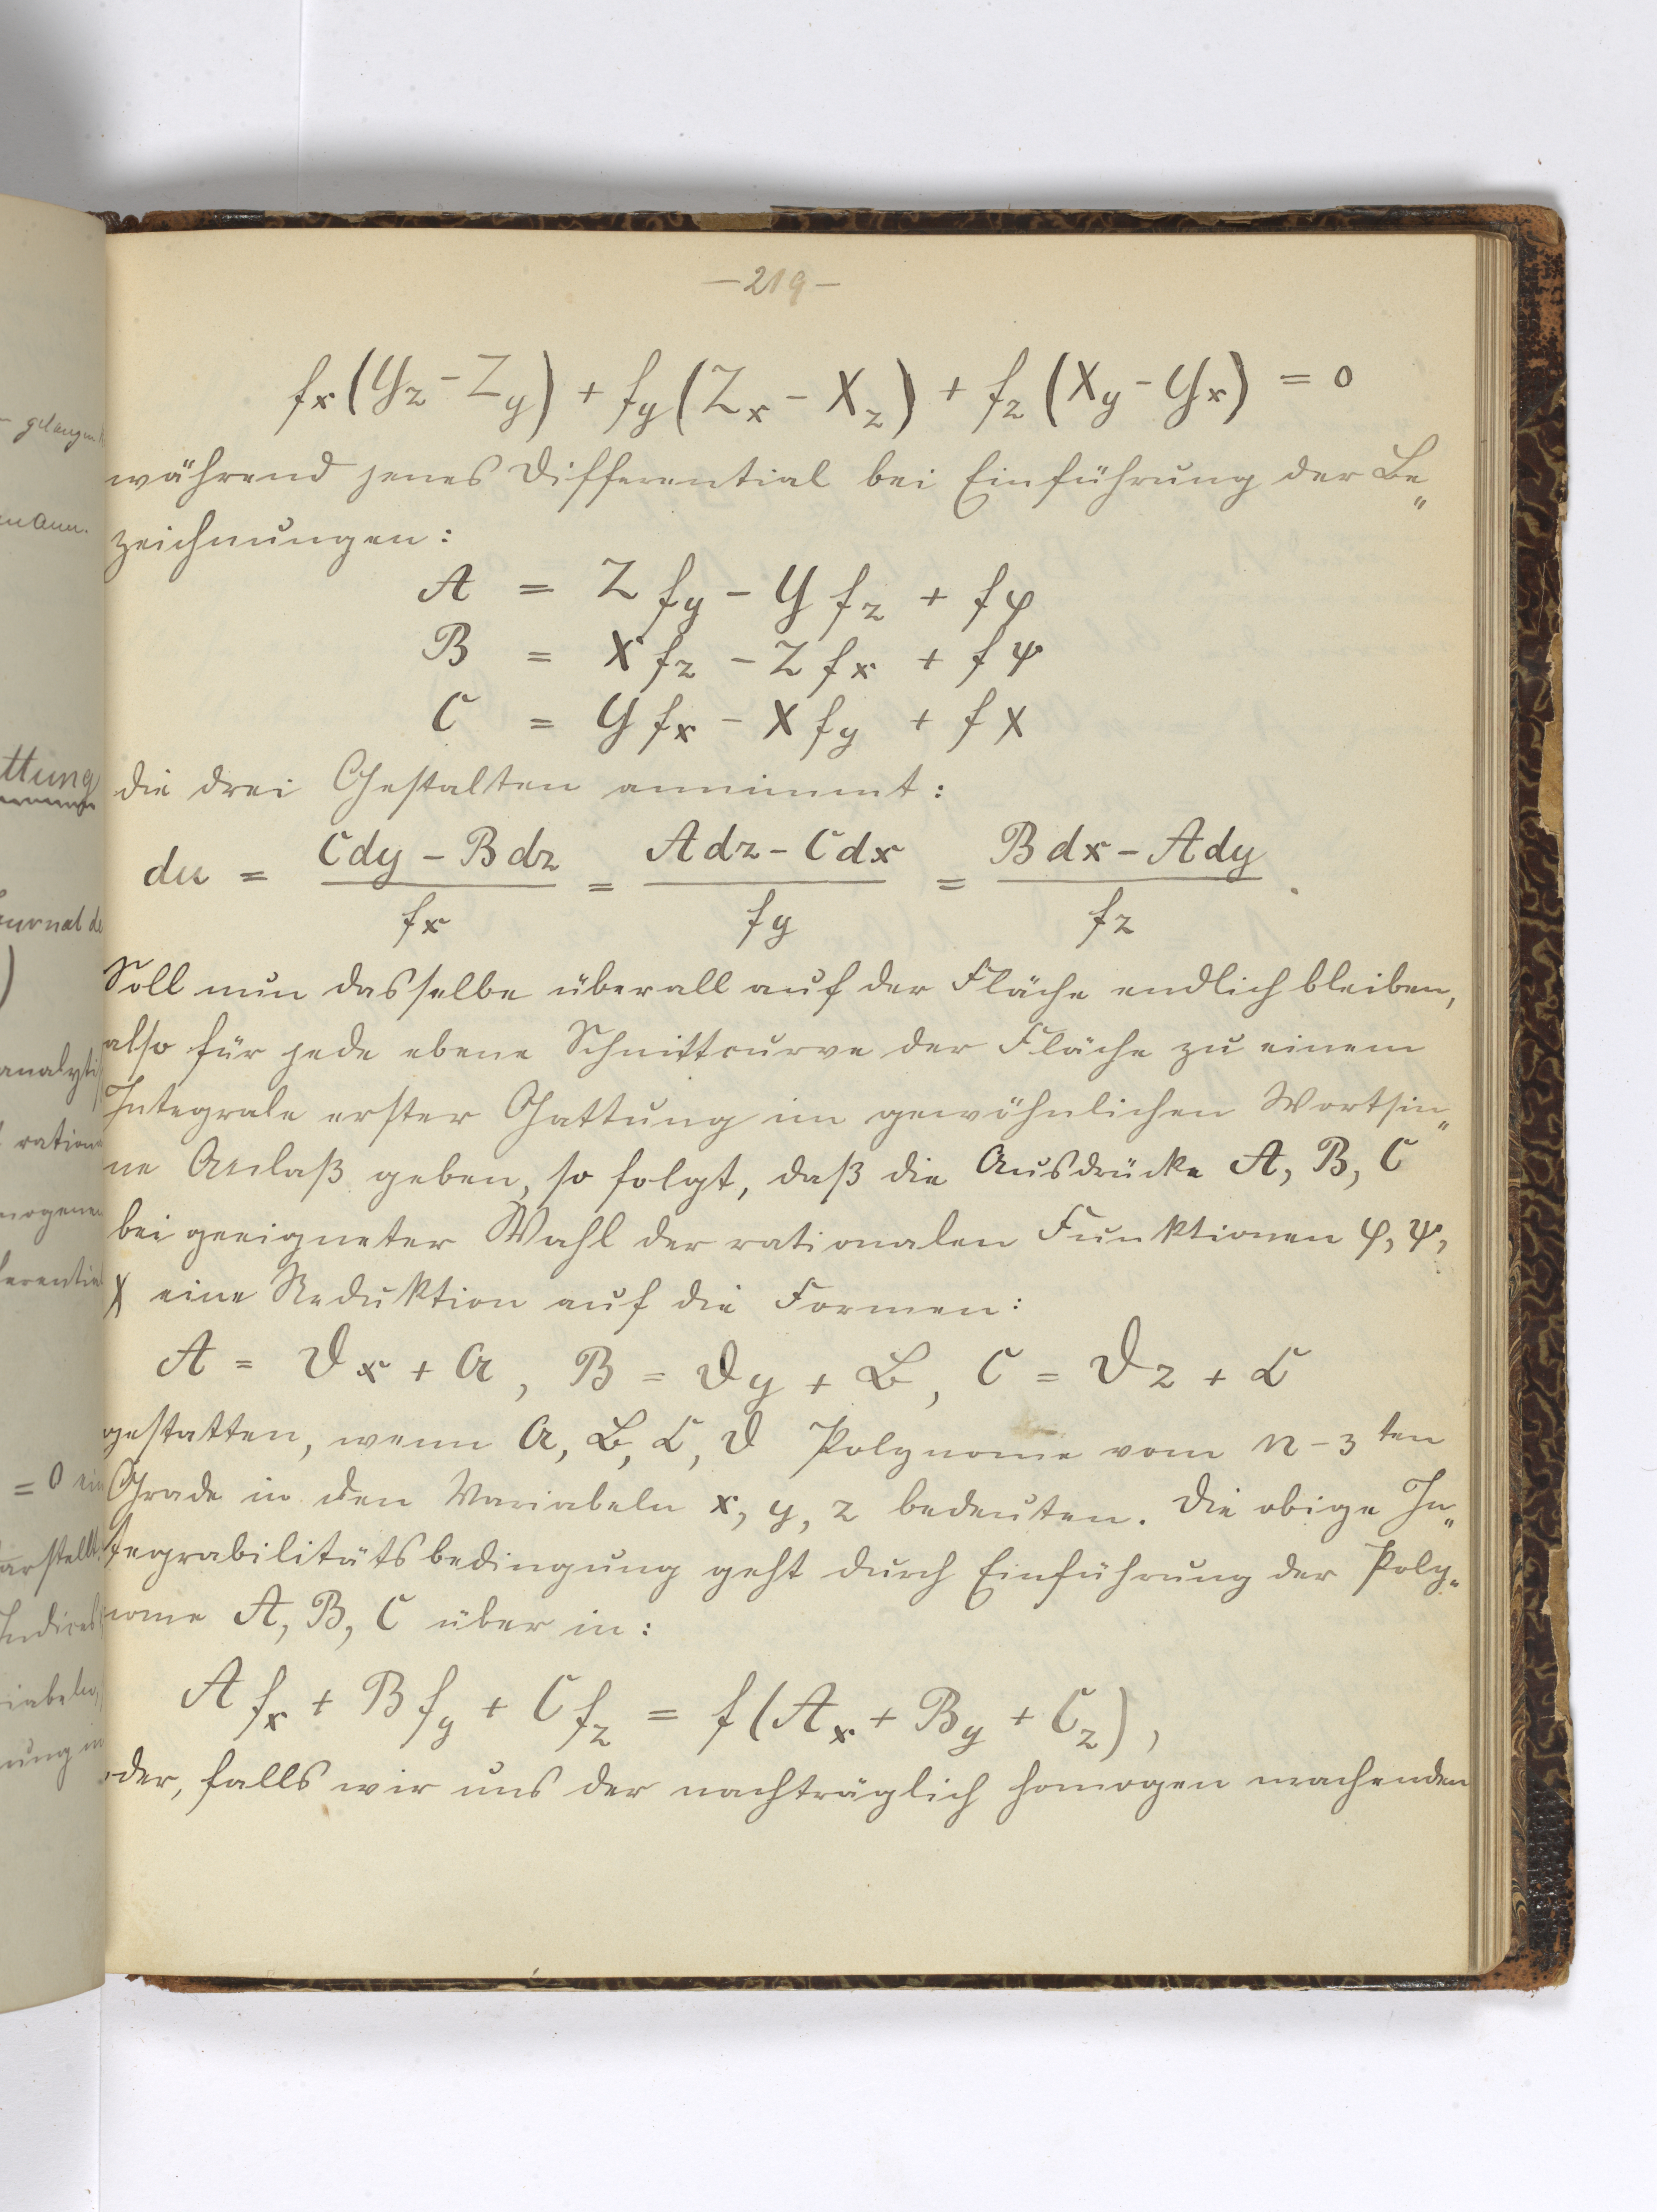 —219—
fx (Yz − Zy) + fy (Zx − Xz) + fz (Xy − Yx) = 0
während jenes Differential bei Einführung der Be„
zeichnungen:
A = Z fy − Y fz + f φ
B = X fz − Z fx + f ψ
C = Y fx − X fy + f χ
die drei Gestalten annimmt:
du = (C dy − B dz)/fx = (A dz − C dx)/fy = (B dx − A dy)/fz .
Soll nun dasselbe überall auf der Fläche endlich bleiben,
also für jede ebene Schnittcurve der Fläche zu einem
Integrale erster Gattung im gewöhnlichen Wortsin„
ne Anlaß geben, so folgt, daß die Ausdrücke A, B, C
bei geeigneter Wahl der rationalen Funktionen φ, ψ,
χ eine Reduktion auf die Formen:
A = 𝔇x + 𝔄, B = 𝔇y + 𝔅, C = 𝔇z + ℭ
gestatten, wenn 𝔄, 𝔅, ℭ, 𝔇 Polynome vom n − 3 ten
Grade in den Variabeln x, y, z bedeuten. Die obige In„
tegrabilitätsbedingung geht durch Einführung der Poly„
nome A, B, C über in:
A fx + B fy + C fz = f (Ax + By + Cz),
oder, falls wir uns der nachträglich homogen machenden
gelangen
ttung
Journal de
analyti
ration
mogenen
ferential
= 0 ein
arstellt
Indices
iabeln
ung in